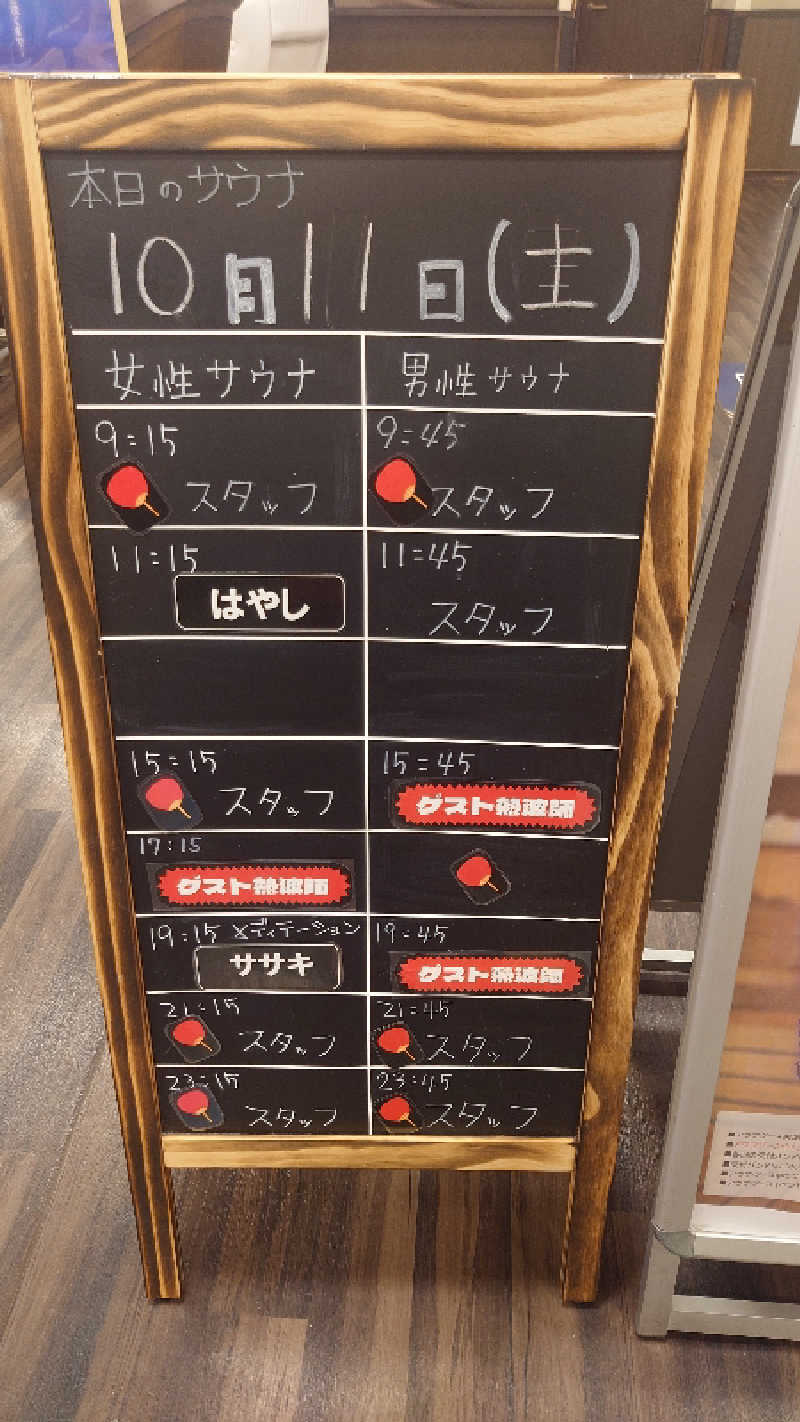 本日のサウナ
10月11日(土)
女性サウナ 男性サウナ
9:15 9:45
スタッフ スタッフ
11:15 11:45
はやし スタッフ
15:15 15:45
スタッフ ゲスト熱波師
17:15
ゲスト熱波師
19:15 メディテーション 19:45
ササキ ゲスト熱波師
21:15 21:45
スタッフ スタッフ
23:15 23:45
スタッフ スタッフ